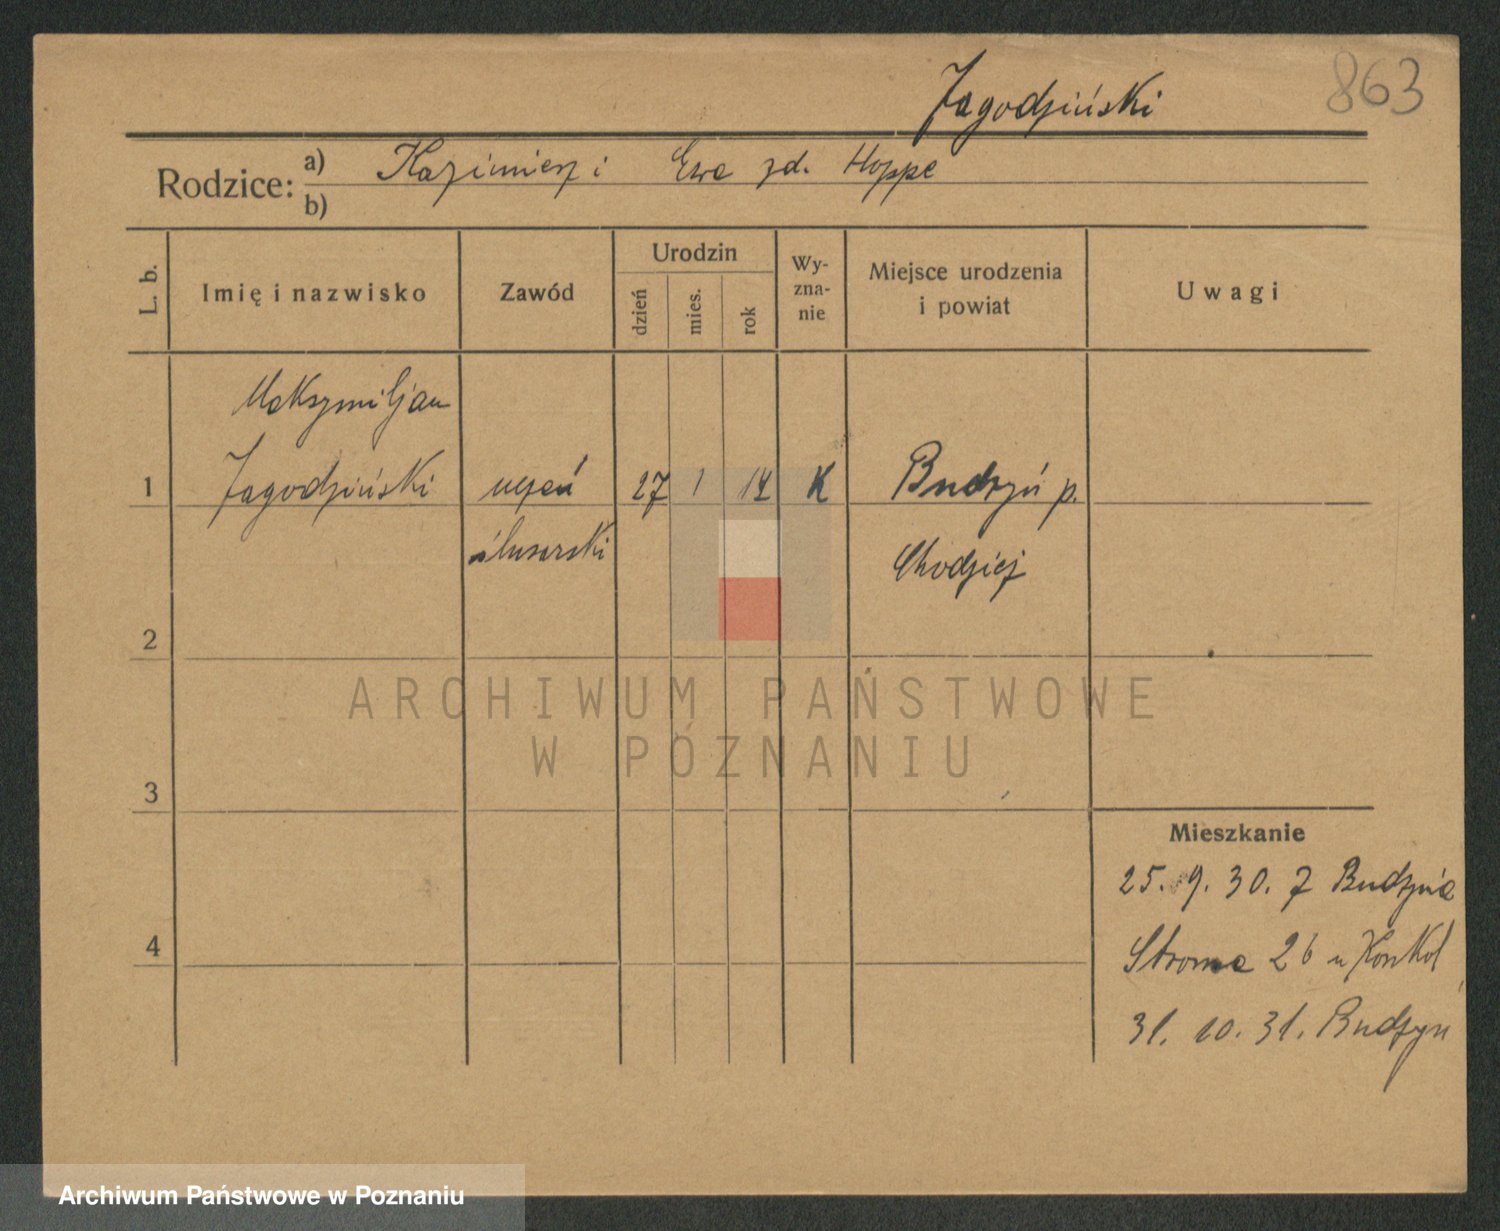 863
Jagodziński
Rodzice: a) Kazimierz i Ewa zd. Hoppe
b)
L. b.
Imię i nazwisko
Zawód
Urodzin
dzień
mies.
rok
Wy-
zna-
nie
Miejsce urodzenia
i powiat
Uwagi
Maksymiljan
1 Jagodziński uczeń 27 1 14 K Budzyń p.
ślusarski Chodzież
2
ARCHIWUM PAŃSTWOWE
W POZNANIU
3
Mieszkanie
25. 9. 30. z Budzynia
4
Stroma 26 u Konkol
31. 10. 31. Budzyń
Archiwum Państwowe w Poznaniu